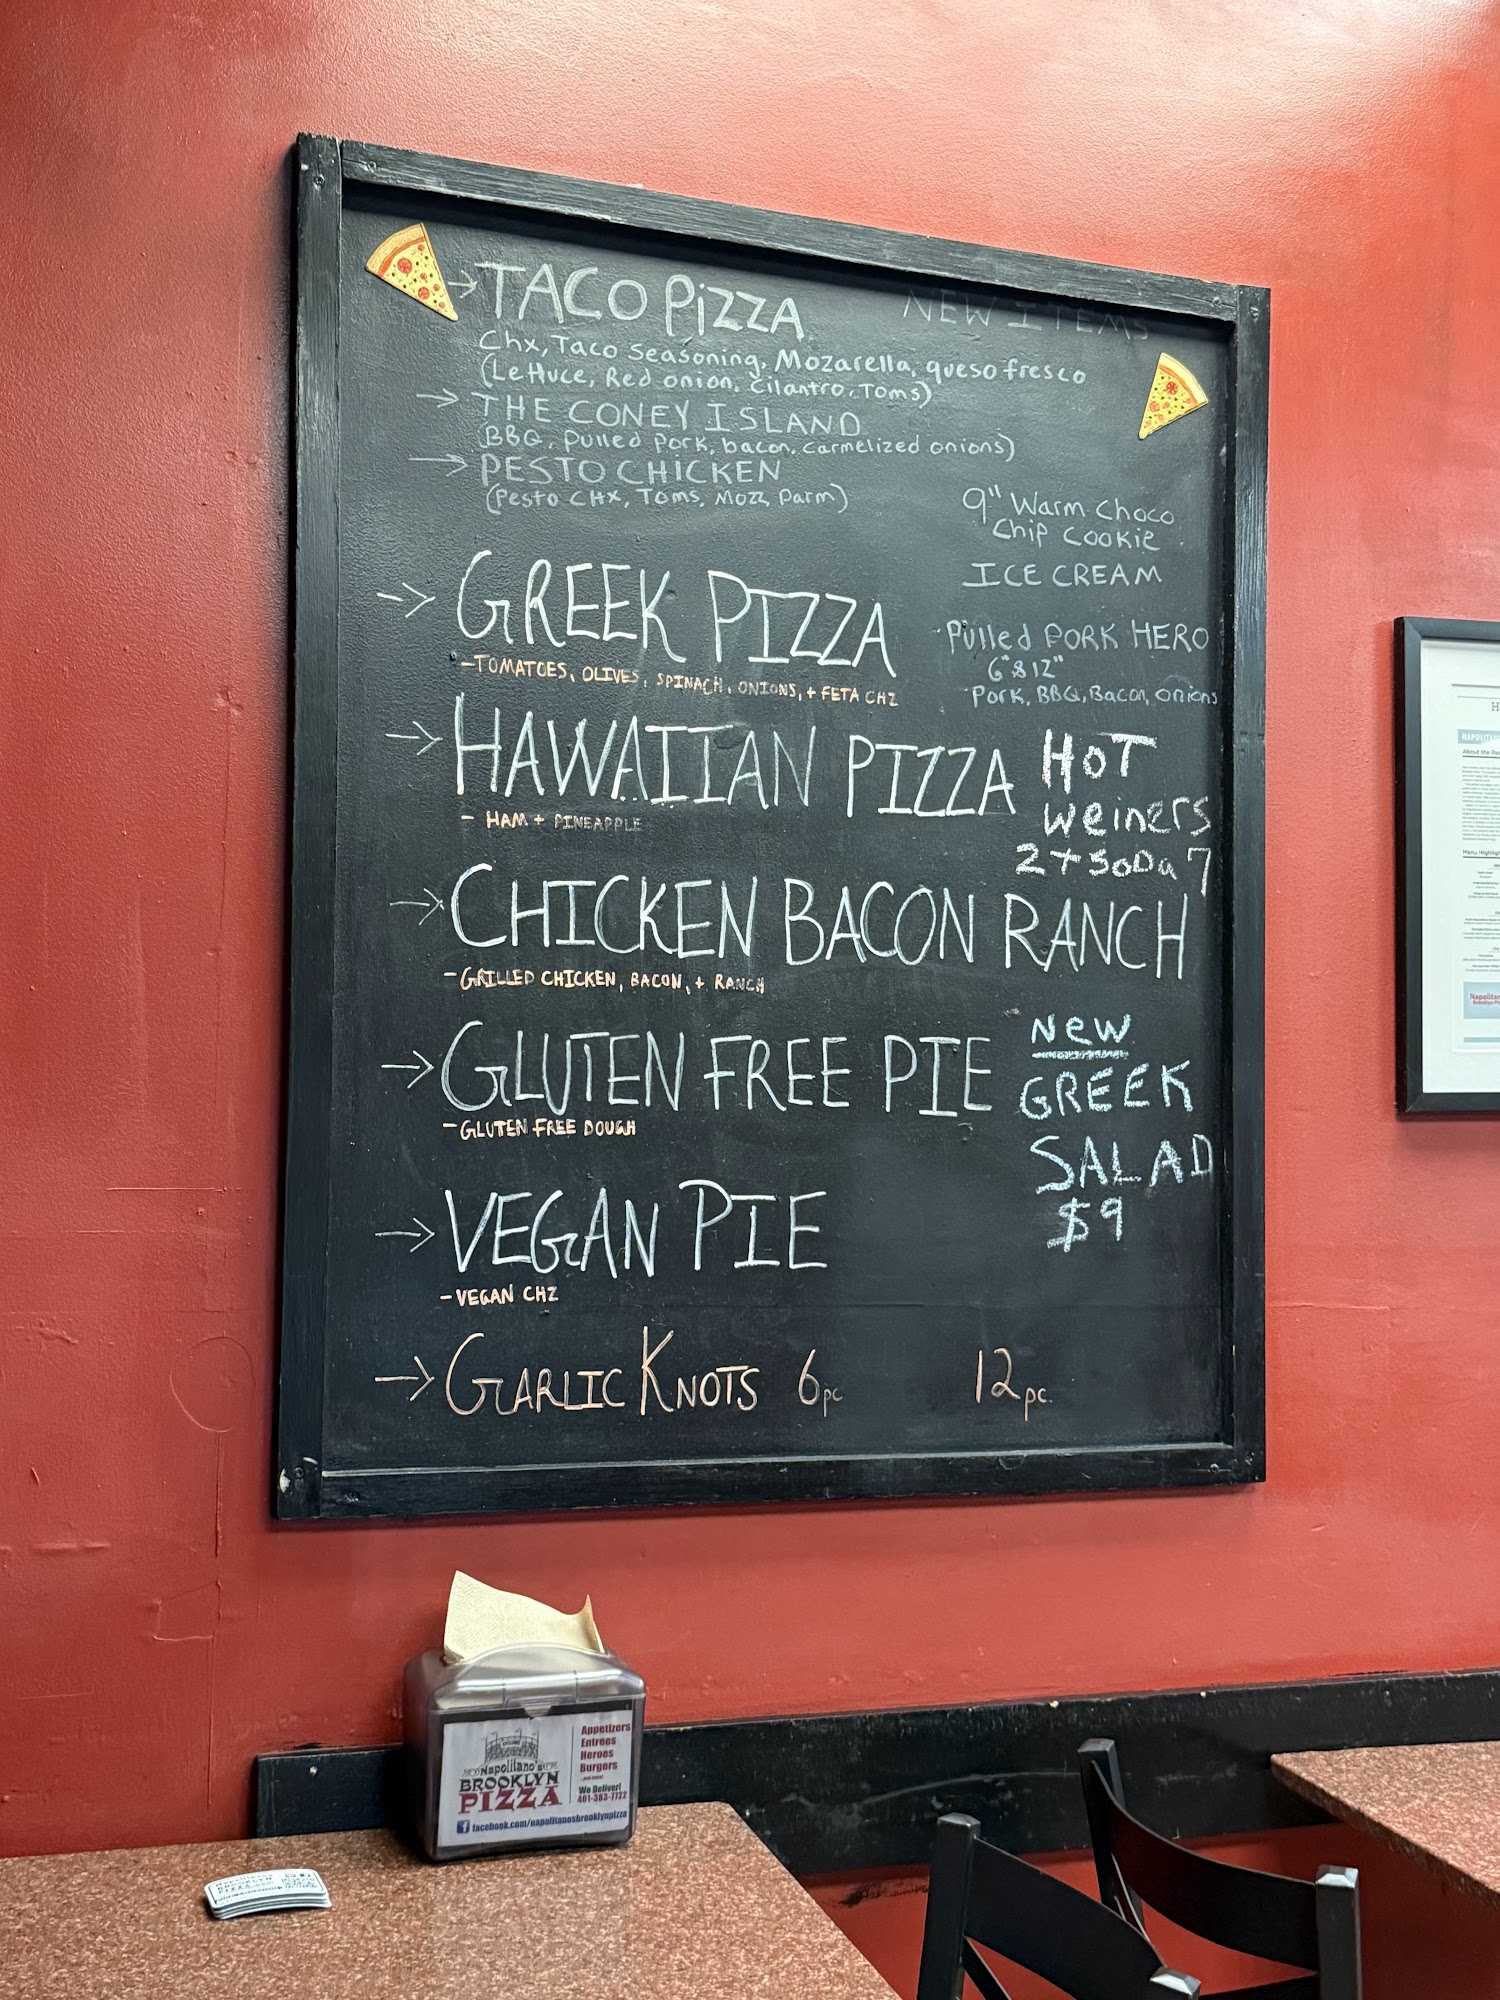 TACO PiZZA
NEW ITEMS
Chx, Taco Seasoning, Mozarella, queso fresco
(Lettuce, Red onion, Cilantro, Toms)
THE CONEY ISLAND
(BBQ, pulled pork, bacon, carmelized onions)
PESTO CHICKEN
(Pesto CHX, Toms, Mozz, Parm)
9" Warm Choco
Chip Cookie
ICE CREAM
GREEK PIZZA
-TOMATOES, OLIVES, SPINACH, ONIONS, + FETA CHZ
Pulled PORK HERO
6" & 12"
Pork, BBQ, Bacon, onions
HAWAIIAN PIZZA
- HAM + PINEAPPLE
HOT
Weiners
2 + SODa 7
CHICKEN BACON RANCH
-GRILLED CHICKEN, BACON, + RANCH
GLUTEN FREE PIE
-GLUTEN FREE DOUGH
New
GREEK
SALAD
$9
VEGAN PIE
-VEGAN CHZ
GARLIC KNOTS 6pc 12pc.
Napolitano's
BROOKLYN
PIZZA
Appetizers
Entrees
Heroes
Burgers
We Deliver!
401-383-7722
facebook.com/napolitanosbrooklynpizza
NAPOLITAN
About the Res
Menu Highligh
Napolitan